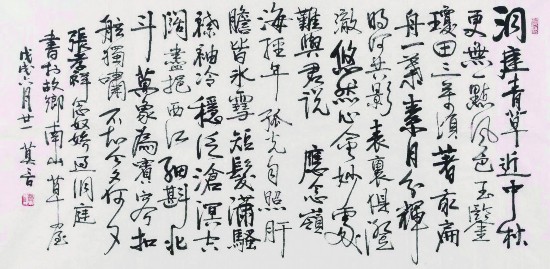 洞庭青草近中秋
更無一點風色玉鑒
瓊田三萬頃著我扁
舟一葉素月分輝
明河共影表裏俱澄
澈悠然心會妙處
難與君說應念嶺
海經年孤光自照肝
膽皆冰雪短髮瀟騷
襟袖冷穩泛滄溟空
闊盡挹西江細斟北
斗萬象為賓客扣
舷獨嘯不知今夕何夕
張孝祥念奴嬌過洞庭
書於故鄉南山草屋
戊戌六月廿一莫言